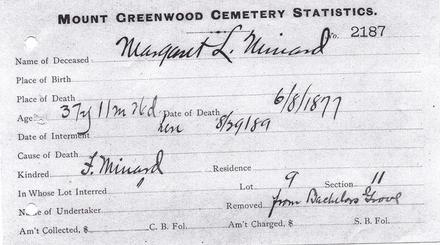 MOUNT GREENWOOD CEMETERY STATISTICS.
No. 2187
Name of Deceased Margaret L. Minard
Place of Birth
Place of Death
Age 37y 11m 7d Date of Death 6/8/1877
Date of Interment here 8/29/89
Cause of Death
Kindred F. Minard Residence
In Whose Lot Interred Lot 9 Section 11
Name of Undertaker Removed from Bachelors Grove
Am't Collected, $ C. B. Fol. Am't Charged, $ S. B. Fol.